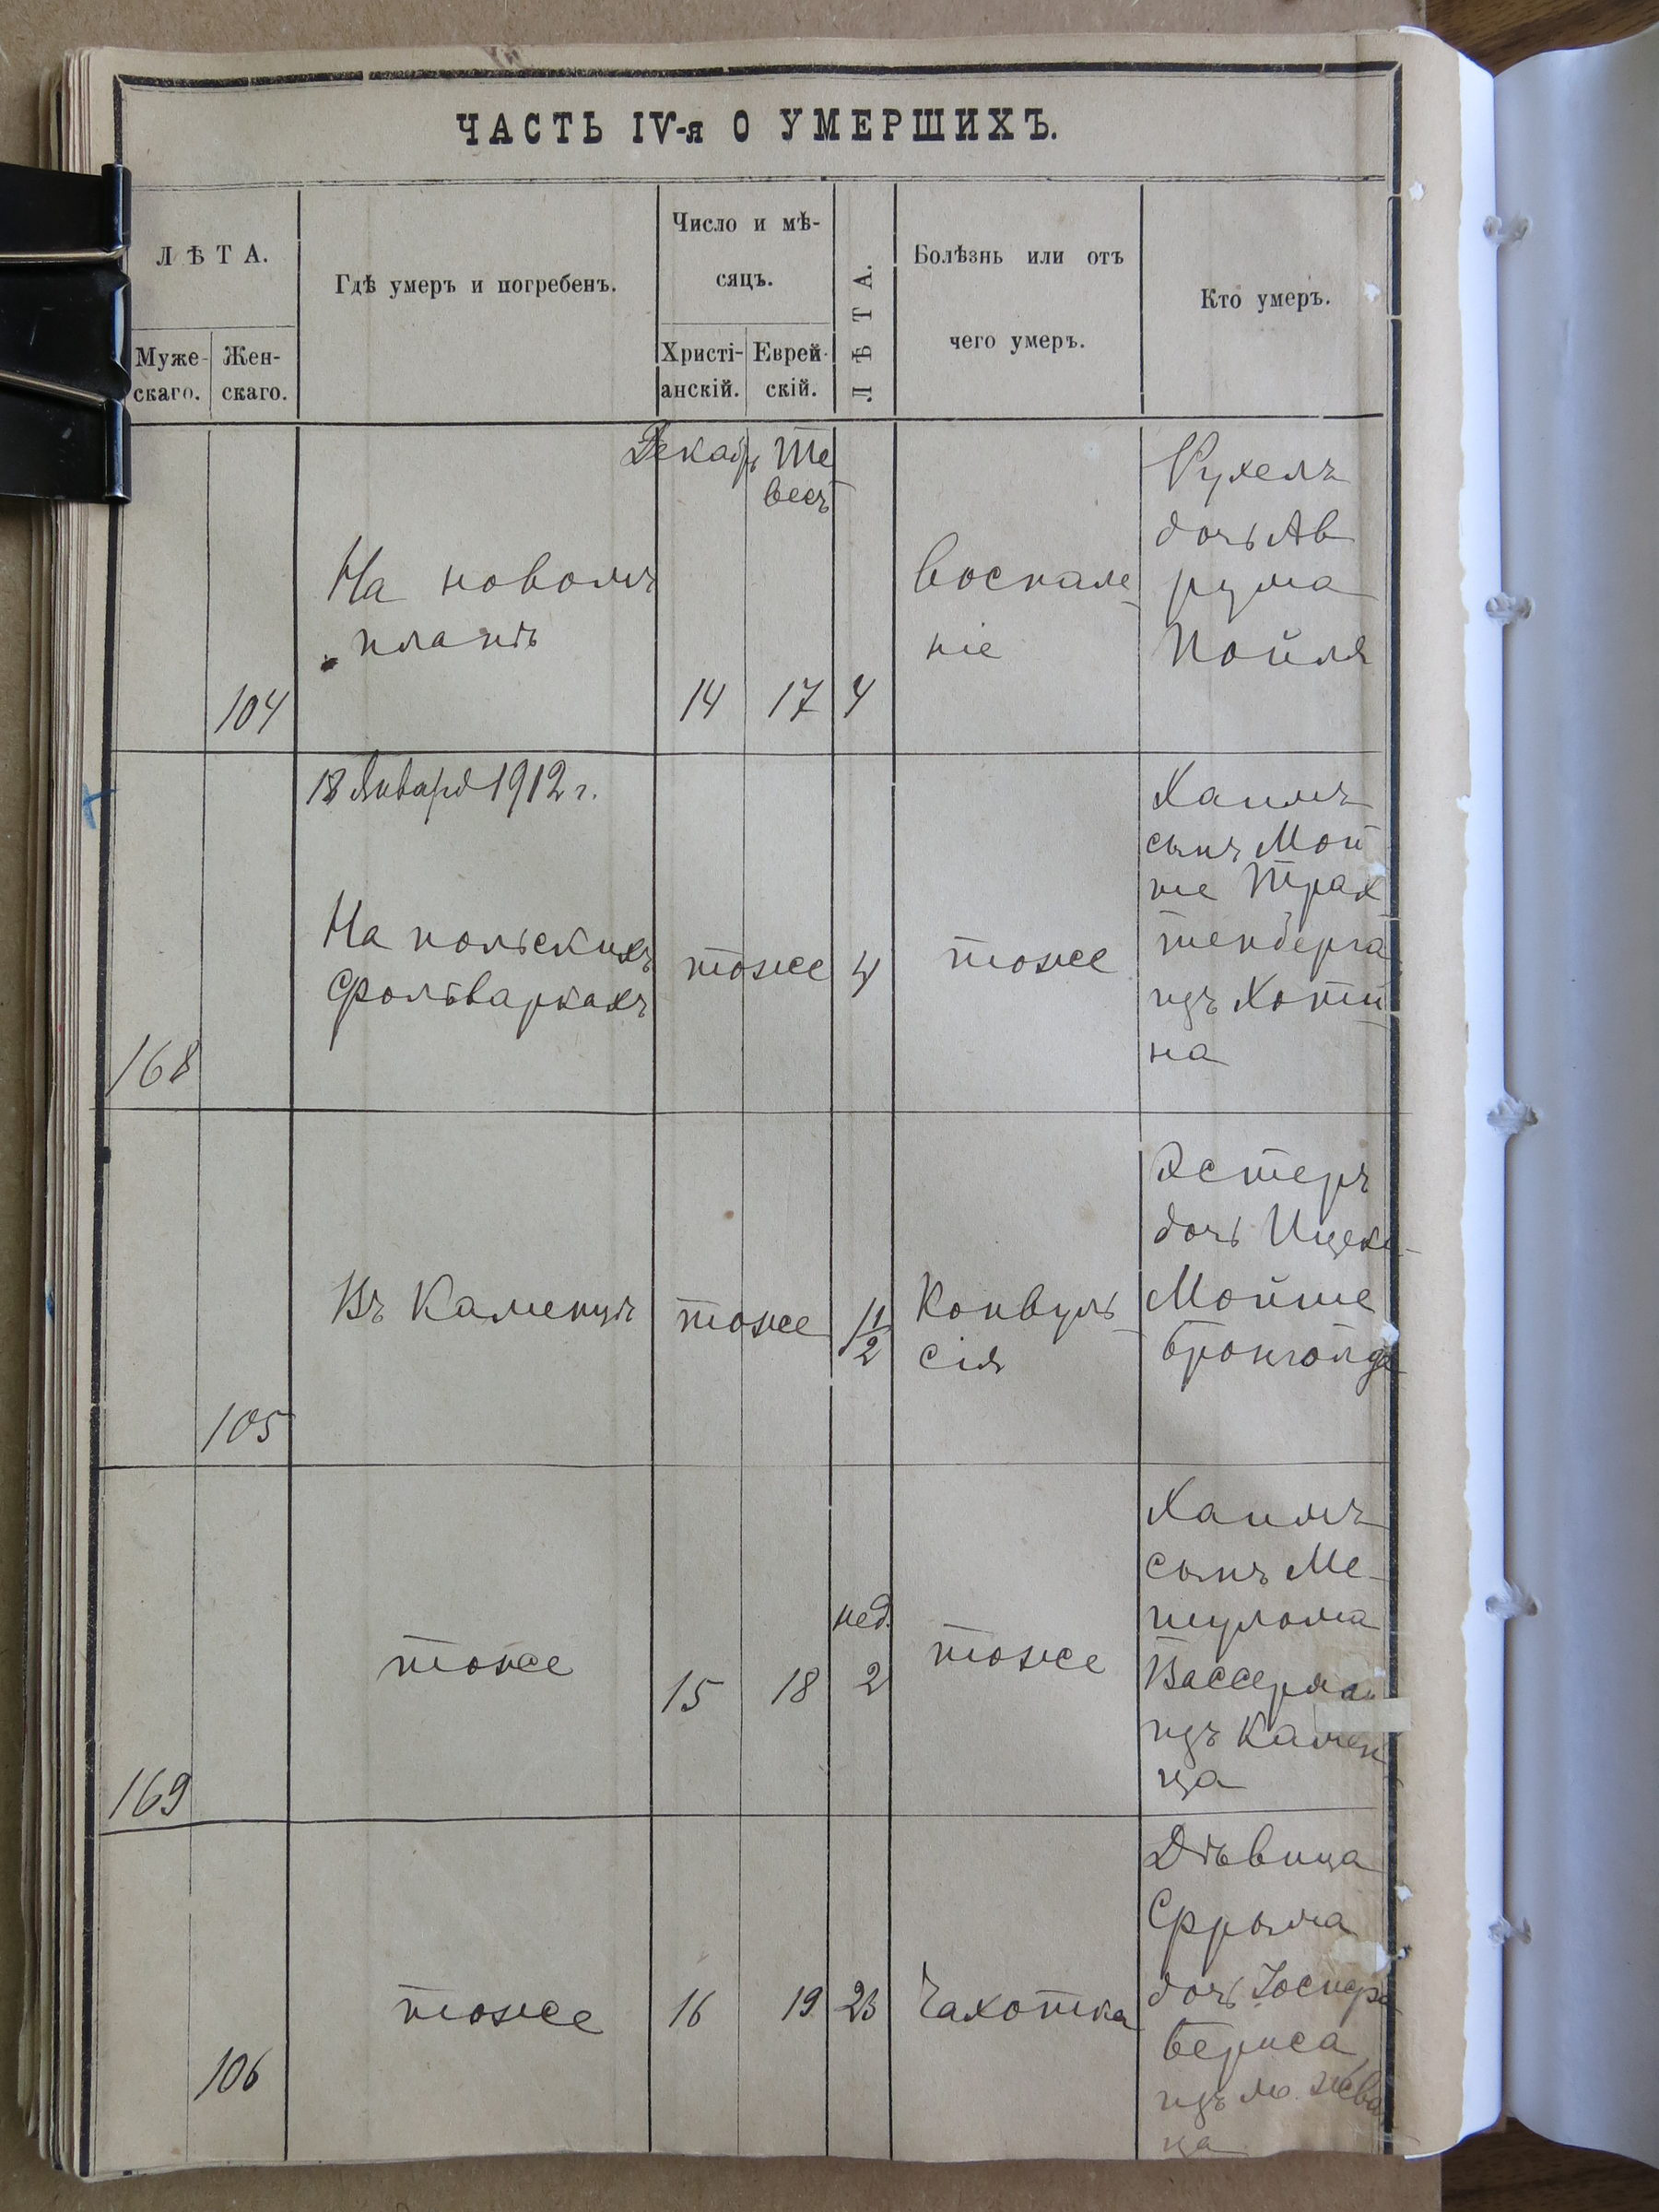 ЧАСТЬ IV-я О УМЕРШИХЪ.
ЛѢТА.
Муже-
скаго.
Жен-
скаго.
Гдѣ умеръ и погребенъ.
Число и мѣ-
сяцъ.
Христі-
анскій.
Еврей-
скій.
ЛѢТА.
Болѣзнь или отъ
чего умеръ.
Кто умеръ.
104
На новомъ
планѣ
Декабр
14
Те
весъ
17
4
Воспале
ніе
Рухель
дочь Ав
рума
Пойля
168
18 Января 1912 г.
На польскихъ
фольваркахъ
тоже
4
тоже
Хаимъ
сынъ Мой
ше Трах
тенберга
изъ Хоти
на
105
Въ Каменцѣ
тоже
1/2
Конвуль
сія
Эстеръ
дочь Ицека
Мойше
Бронгольда
169
тоже
15
18
нед.
2
тоже
Хаимъ
сынъ Ме-
шулома
Вассерман
изъ Камен
ца
106
тоже
16
19
23
Чахотка
Дѣвица
Фрыма
дочь
Бериса
изъ м. Жван
ца